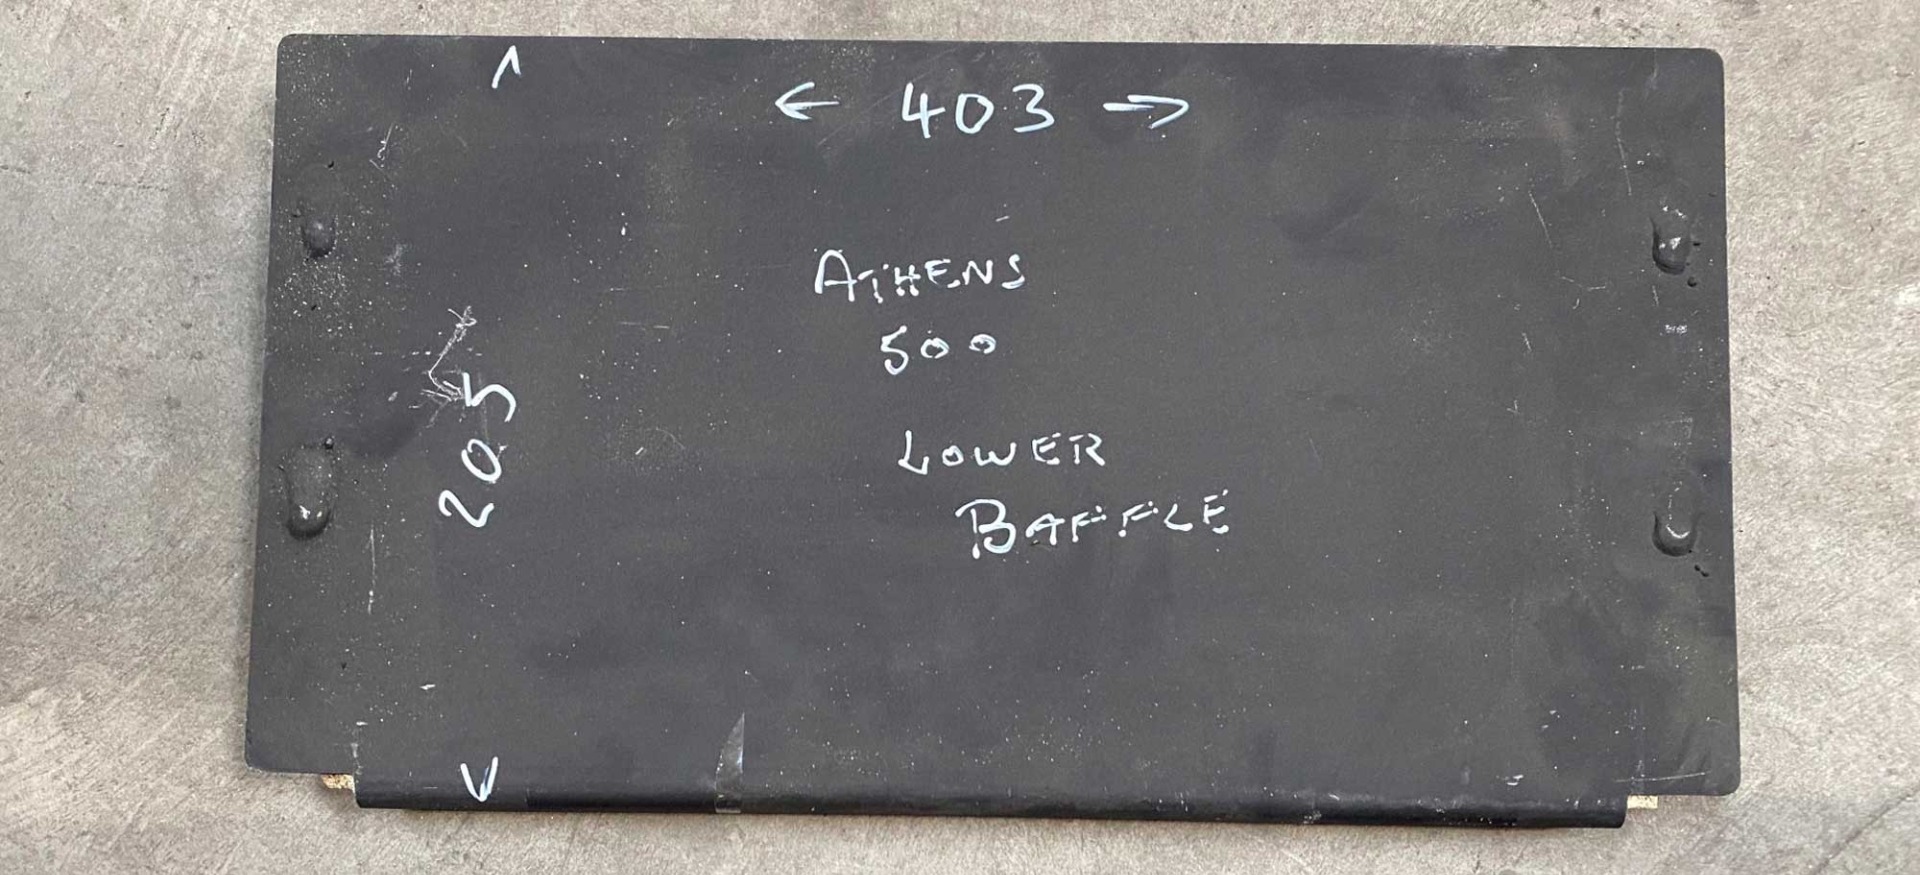 ← 403 →
ATHENS
500
205
LOWER
BAFFLE